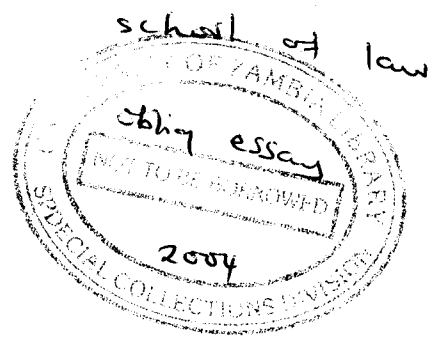 school of law
OF ZAMBIA LIBRARY
oblig essay
NOT TO BE BORROWED
2004
SPECIAL COLLECTIONS DIVISION